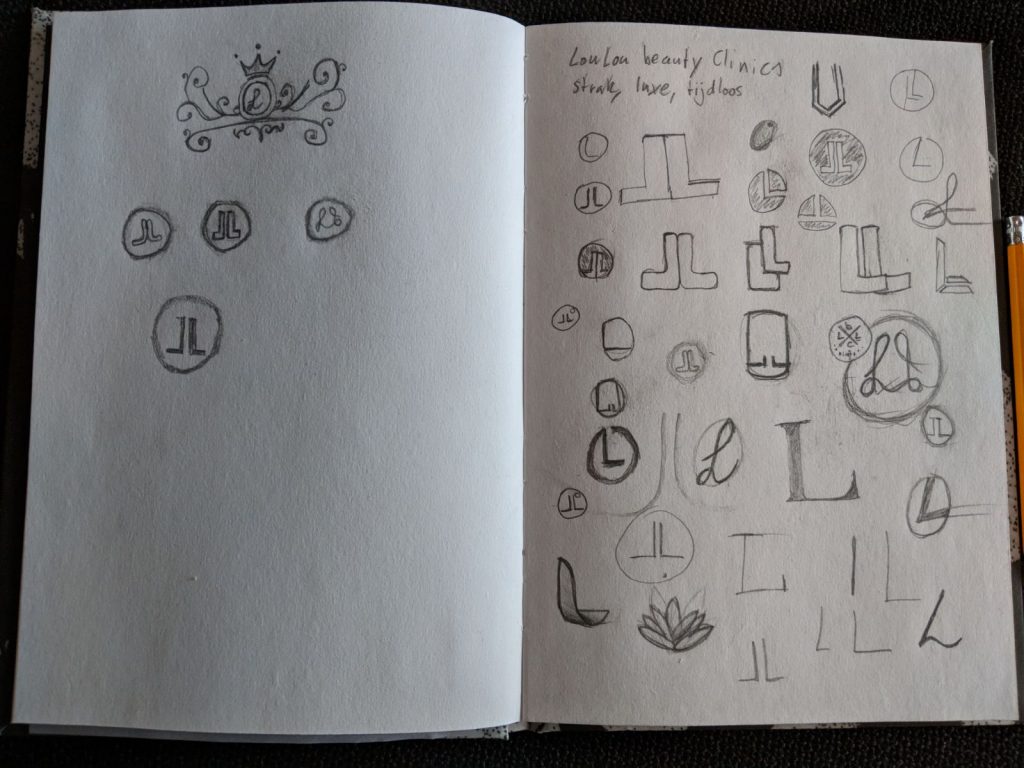 LouLou beauty Clinics
strak, luxe, tijdloos
L
L
L
L
L
L
L
L
L
L
L